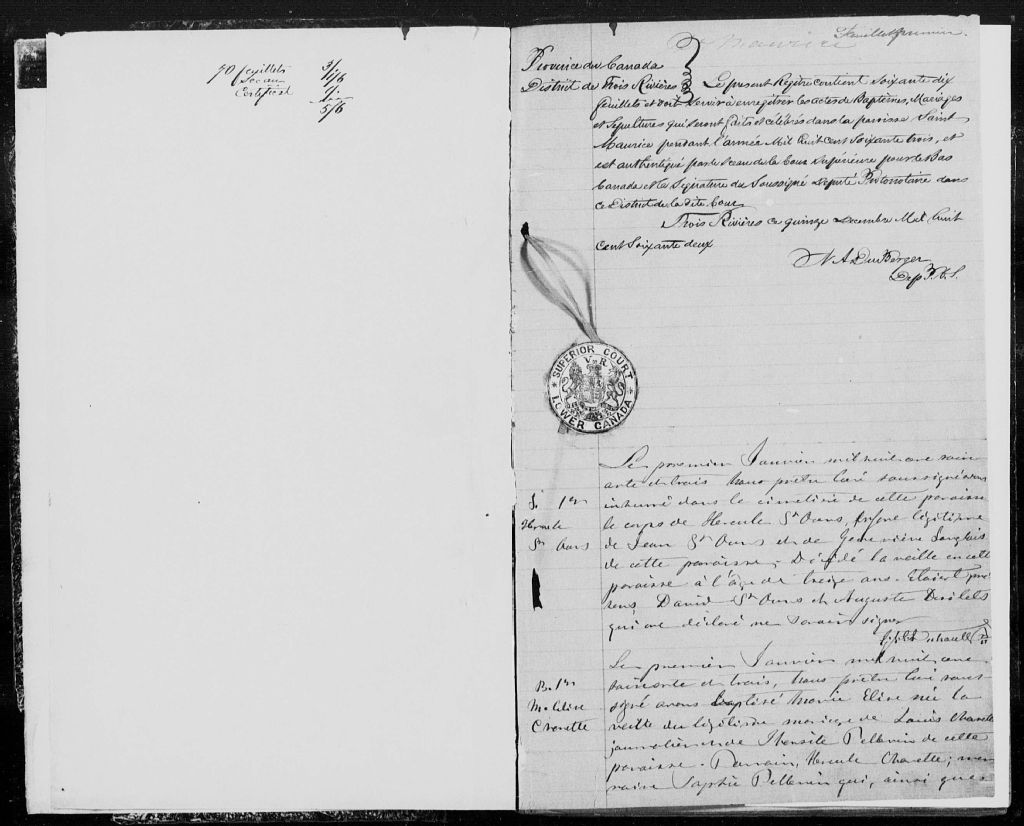 70 feuillets 3/
Sceau 1/6
Certificat 1/.
5/6
St Maurice
Feuillet premier.
Province du Canada
District de Trois Rivières Le présent Régitre contient Soixante dix
feuillets et doit servir à enregitrer les actes de Baptêmes, Mariages
et Sépultures qui seront faits et célébrés dans la paroisse Saint
Maurice pendant l'année Mil huit cent Soixante trois, et
est authentiqué par le Sceau de la Cour Supérieure pour le Bas
Canada et la Signature du Soussigné Député Protonotaire dans
ce District de la dite Cour
Trois Rivières ce quinze Decembre Mil huit
cent Soixante deux
N. A. DuBerger
Dep P.C.S.
SUPERIOR COURT
V R
LOWER CANADA
S. 1er
Hercule
St Ours
Le premier Janvier mil huit cent soix
ante et trois Nous prêtre Curé soussigné avons
inhumé dans le cimetière de cette paroisse
le corps de Hercule St Ours, légitime
de Jean St Ours et de Geneviève Langlais
de cette paroisse, Décédé la veille en cette
paroisse à l'âge de treize ans. Etaient pré
sens, David St Ours et Auguste Desilets
qui ont déclaré ne savoir signer
B. 1er
M. Elise
Charette
Le premier Janvier mil huit cent
soixante et trois, Nous prêtre Curé sous
signé avons baptisé Marie Elise née la
veille du légitime mariage de Louis Charette
journalier et de Thersile Pellerin de cette
paroisse. Parrain, Hercule Charette; mar
raine Sophie Pellerin qui, ainsi que